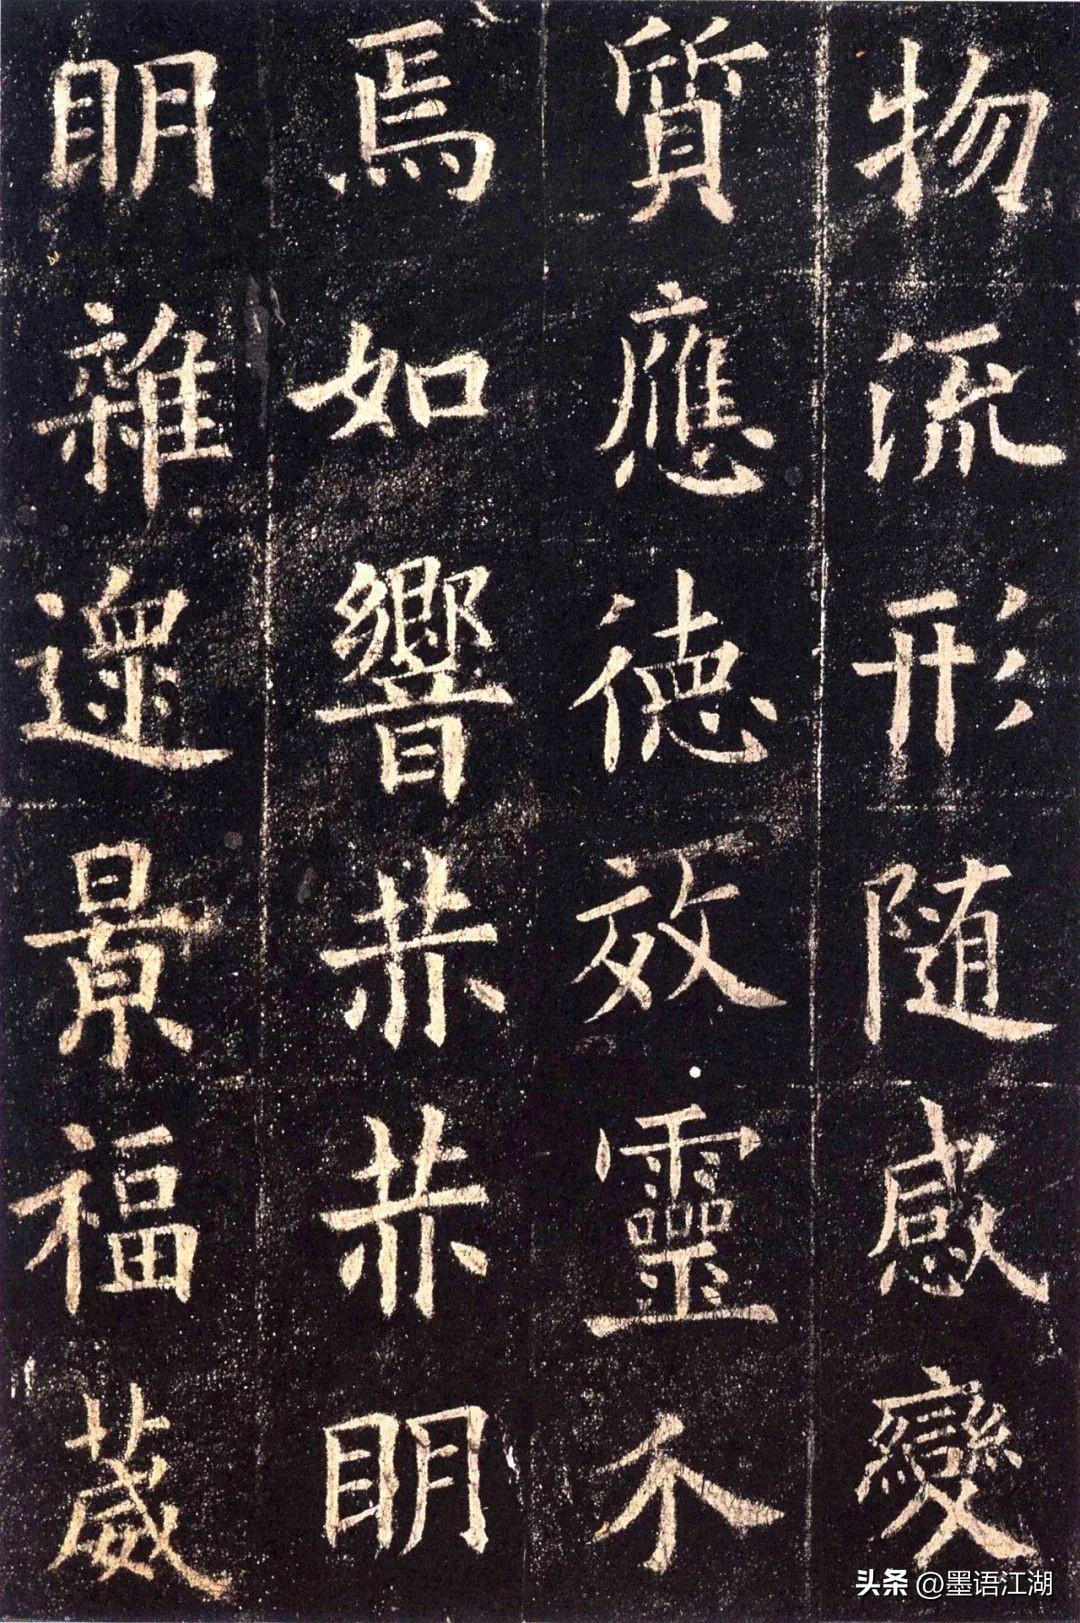 物流形随感變
質應德效靈不
焉如響恭恭明
明雜遝景福葳
头条 @墨语江湖